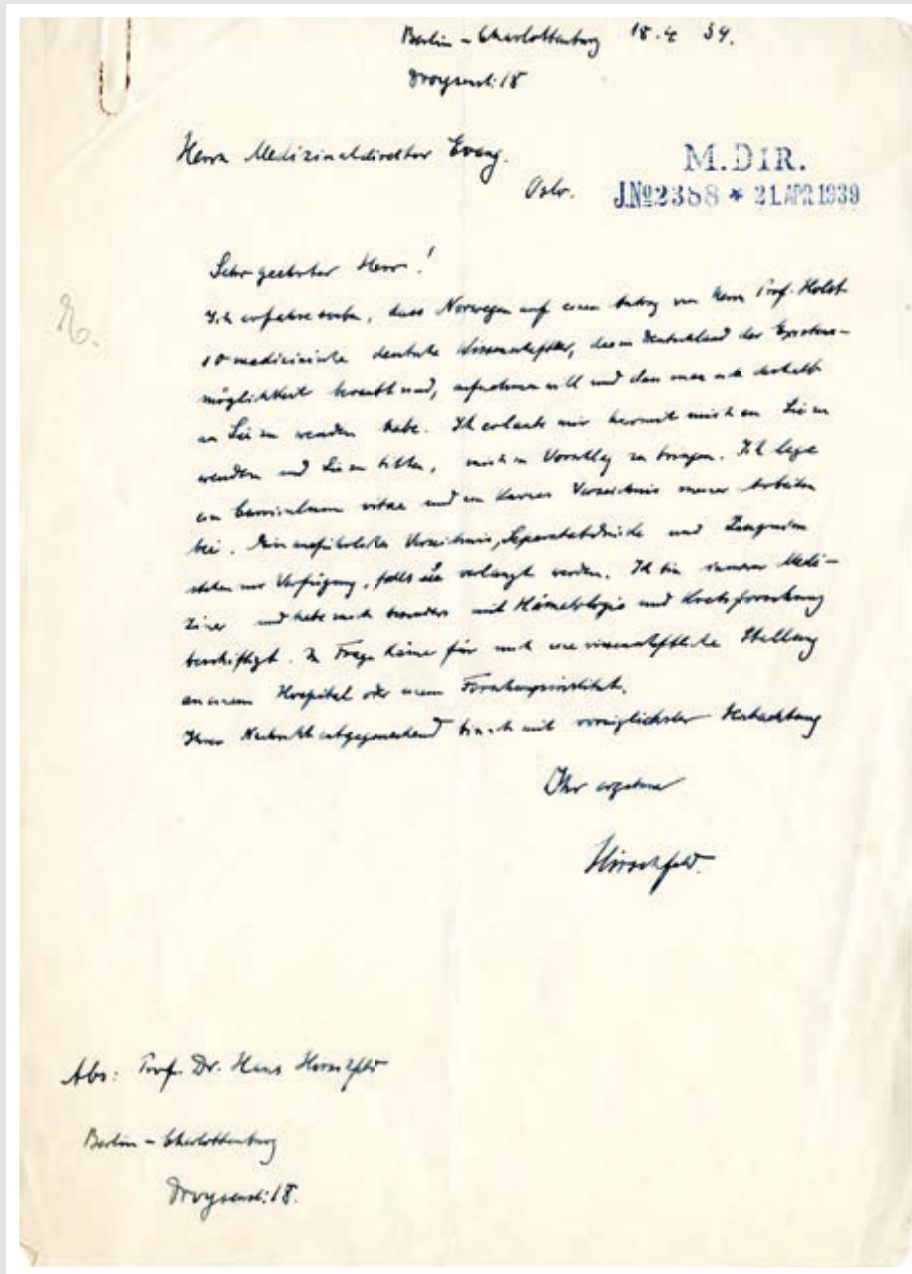 Berlin - Charlottenburg 18.4 39.
Droysenstr. 18
Herrn Medizinaldirektor Evang.
Oslo.
M.DIR.
J.№2388 * 21.APR.1939
Sehr geehrter Herr!
Ich erfahre soeben, dass Norwegen auf einen Antrag von Herrn Prof. Holst
10 medicinische deutsche Wissenschaftler, die in Deutschland der Existenz-
möglichkeit beraubt sind, aufnehmen will und dass man sich deshalb
an Sie zu wenden habe. Ich erlaube mir hiermit mich an Sie zu
wenden und Sie zu bitten, mich in Vorschlag zu bringen. Ich lege
ein Curriculum vitae und ein kurzes Verzeichnis meiner Arbeiten
bei. Ein ausführliches Verzeichnis, Separatabdrücke und Zeugnisse
stehen zur Verfügung, falls sie verlangt werden. Ich bin innerer Medi-
ziner und habe mich besonders mit Hämatologie und Krebsforschung
beschäftigt. In Frage käme für mich eine wissenschaftliche Stellung
an einem Hospital oder einem Forschungsinstitut.
Ihrer Nachricht entgegensehend bin ich mit vorzüglichster Hochachtung
Ihr ergebener
Hirschfeld.
Abs: Prof. Dr. Hans Hirschfeld
Berlin - Charlottenburg
Droysenstr. 18.